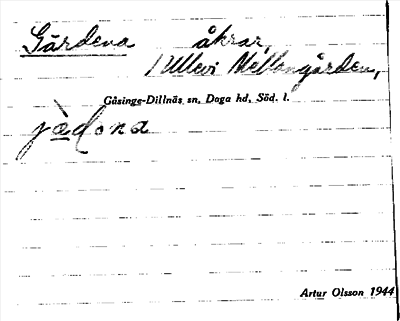 Gärdena åkrar,
i Ullevi Mellangården,
Gåsinge-Dillnäs sn, Daga hd, Söd. l.
jä̀dɔna
Artur Olsson 1944